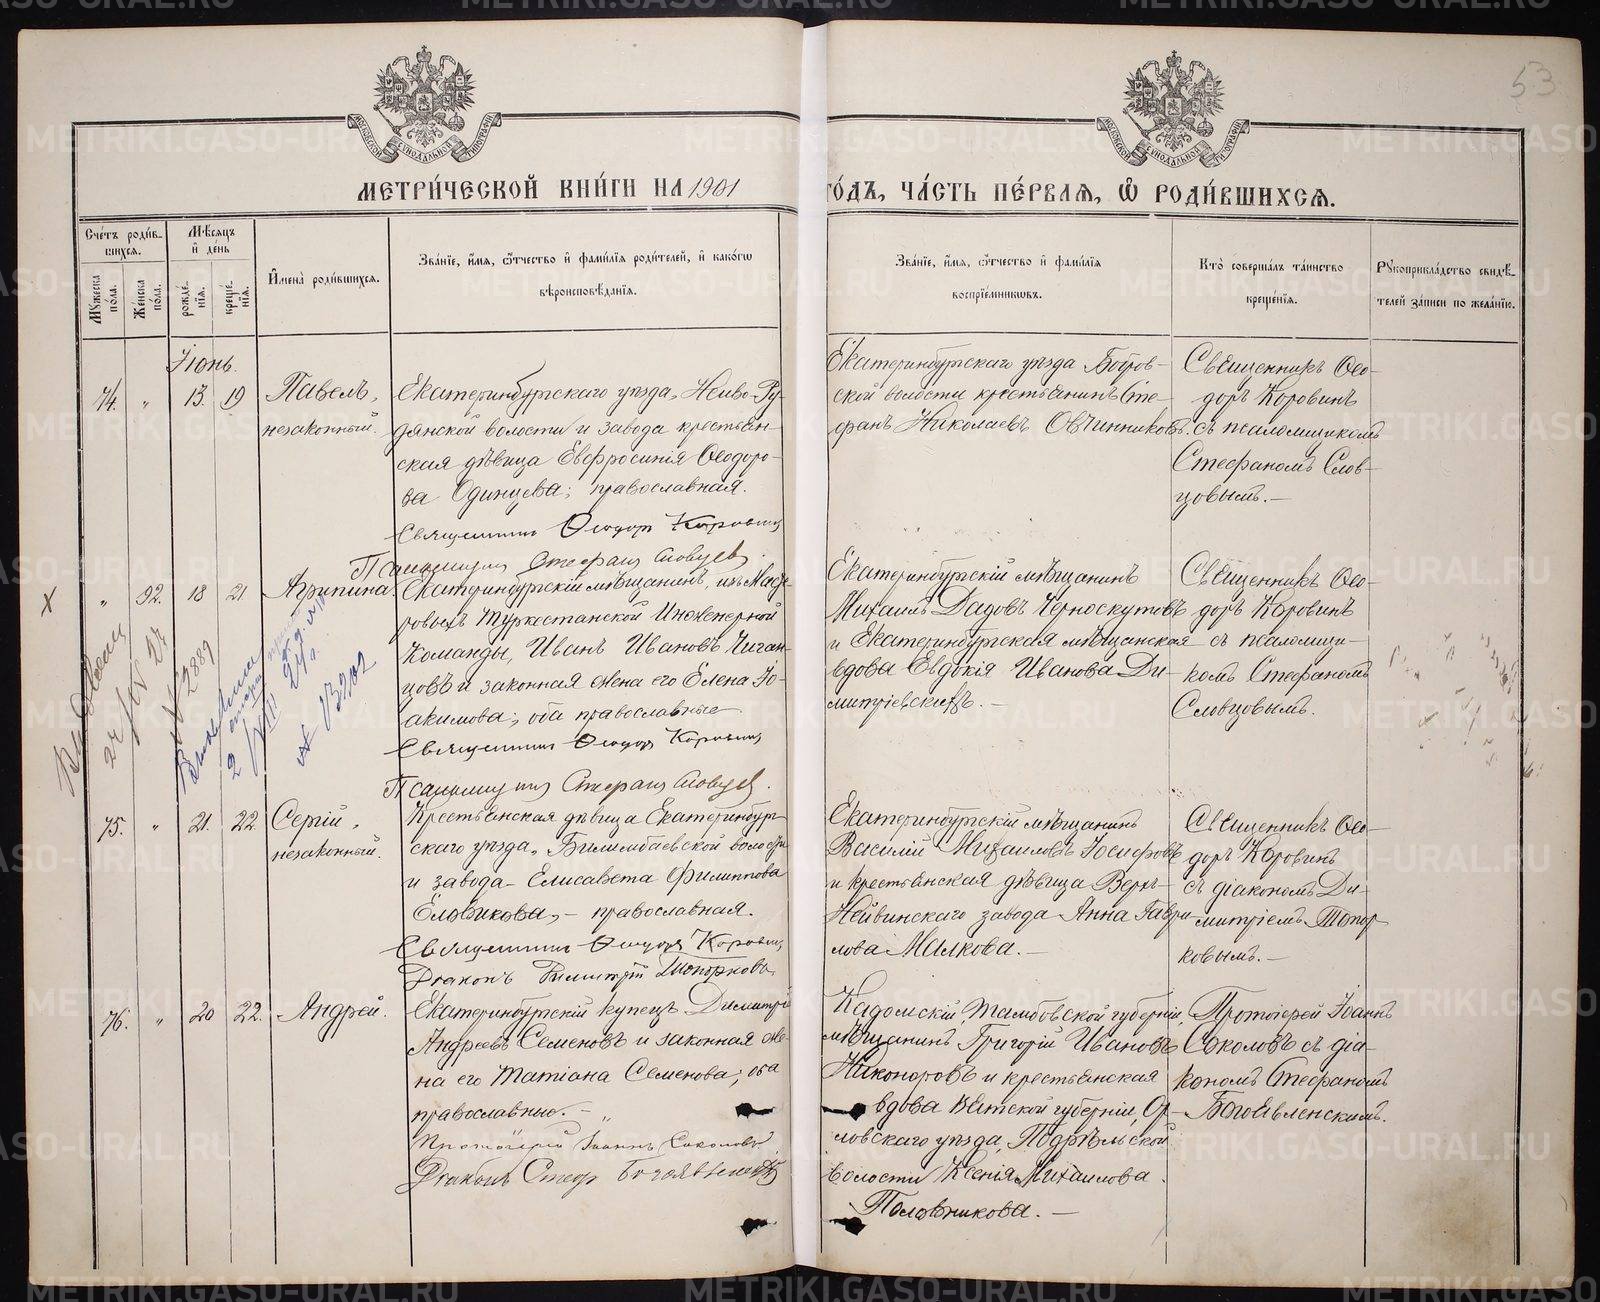 53
МОСКОВСКОЙ СѴНОДАЛЬНОЙ ТИПОГРАФІИ
МОСКОВСКОЙ СѴНОДАЛЬНОЙ ТИПОГРАФІИ
МЕТРИ́ЧЕСКОЙ КНИ́ГИ НА 1901
ГО́ДЪ, ЧА́СТЬ ПЕ́РВАѦ, Ѡ҆ РОДИ́ВШИХСѦ.
Сче́тъ роди́в-
шихсѧ.
Мꙋжеска по́ла.
Же́нска по́ла.
Мѣ́сѧцъ
и҆ де́нь
рожде́-
нїѧ.
креще́-
нїѧ.
И҆мена̀ роди́вшихсѧ.
Зва́нїе, и҆́мѧ, ѻ҆́тчество и҆ фами́лїѧ роди́телей, и҆ како́гѡ
вѣроисповѣ́данїѧ.
Зва́нїе, и҆́мѧ, ѻ҆́тчество и҆ фами́лїѧ
воспрїе́мниковъ.
Кто̀ соверша́лъ та́инство
креще́нїѧ.
Рꙋкоприкла́дство свидѣ́-
телей за́писи по жела́нїю.
Іюнь.
74. „ 13. 19
Павелъ,
незаконный.
Екатеринбургскаго уѣзда, Нейво-Ру-
дянской волости и завода крестьян-
ская дѣвица Евфросинія Ѳеодоро-
ва Одинцева; православная.
Священникъ Ѳеодоръ Коровинъ
Псаломщикъ Стефанъ Словцовъ.
Екатеринбургскаго уѣзда
ской волости крестьянинъ Сте-
фанъ Николаевъ Овчинниковъ.
Священникъ Ѳео-
доръ Коровинъ
съ псаломщикомъ
Стефаномъ Слов-
цовымъ.—
х „ 92. 18 21
Агрипина
Екатеринбургскій мѣщанинъ, изъ Масте-
ровыхъ Туркестанской Инженерной
Команды, Иванъ Ивановъ Чиган-
цовъ и законная жена его Елена Іо-
акимова; оба православные.
Священникъ Ѳеодоръ Коровинъ
Псаломщикъ Стефанъ Словцовъ.
Екатеринбургскій мѣщанинъ
Михаилъ Черноскутовъ
и Екатеринбургская мѣщанская
вдова Евдокія Иванова Ди-
митріевскихъ.—
Священникъ Ѳео-
доръ Коровинъ
съ псаломщи-
комъ Стефаномъ
Словцовымъ.
27/IV 27
№ 2889
№ 13202
75. „ 21. 22.
Сергій,
незаконный.
Крестьянская дѣвица Екатеринбург-
скаго уѣзда, Билимбаевской волости
и завода— Елисавета Филиппова
Еловикова,— православная.
Священникъ Ѳеодоръ Коровинъ
Діаконъ Димитрій Топорковъ
Екатеринбургскій мѣщанинъ
Василій Михаиловъ Іосифовъ
и крестьянская дѣвица Верхъ-
Нейвинскаго завода Анна Гаври-
лова Малкова.—
Священникъ Ѳео-
доръ Коровинъ
съ діакономъ Ди-
митріемъ Топор-
ковымъ.—
76. „ 20 22.
Андрей.
Екатеринбургскій купецъ Димитрій
Андреевъ Семеновъ и законная же-
на его Татіана Семенова; оба
православные.—
Протоіерей Іоаннъ Соколовъ
Діаконъ Стеф. Богоявленскій
Кадомскій, Тамбовской губерніи,
мѣщанинъ Григорій Ивановъ
Никоноровъ и крестьянская
вдова Вятской губерніи, Ор-
ловскаго уѣзда, Подрѣльской
волости Ксенія Михаилова
Половникова.—
Протоіерей Іоаннъ
Соколовъ съ діа-
кономъ Стефаномъ
Богоявленскимъ.
METRIKI.GASO-URAL.RU